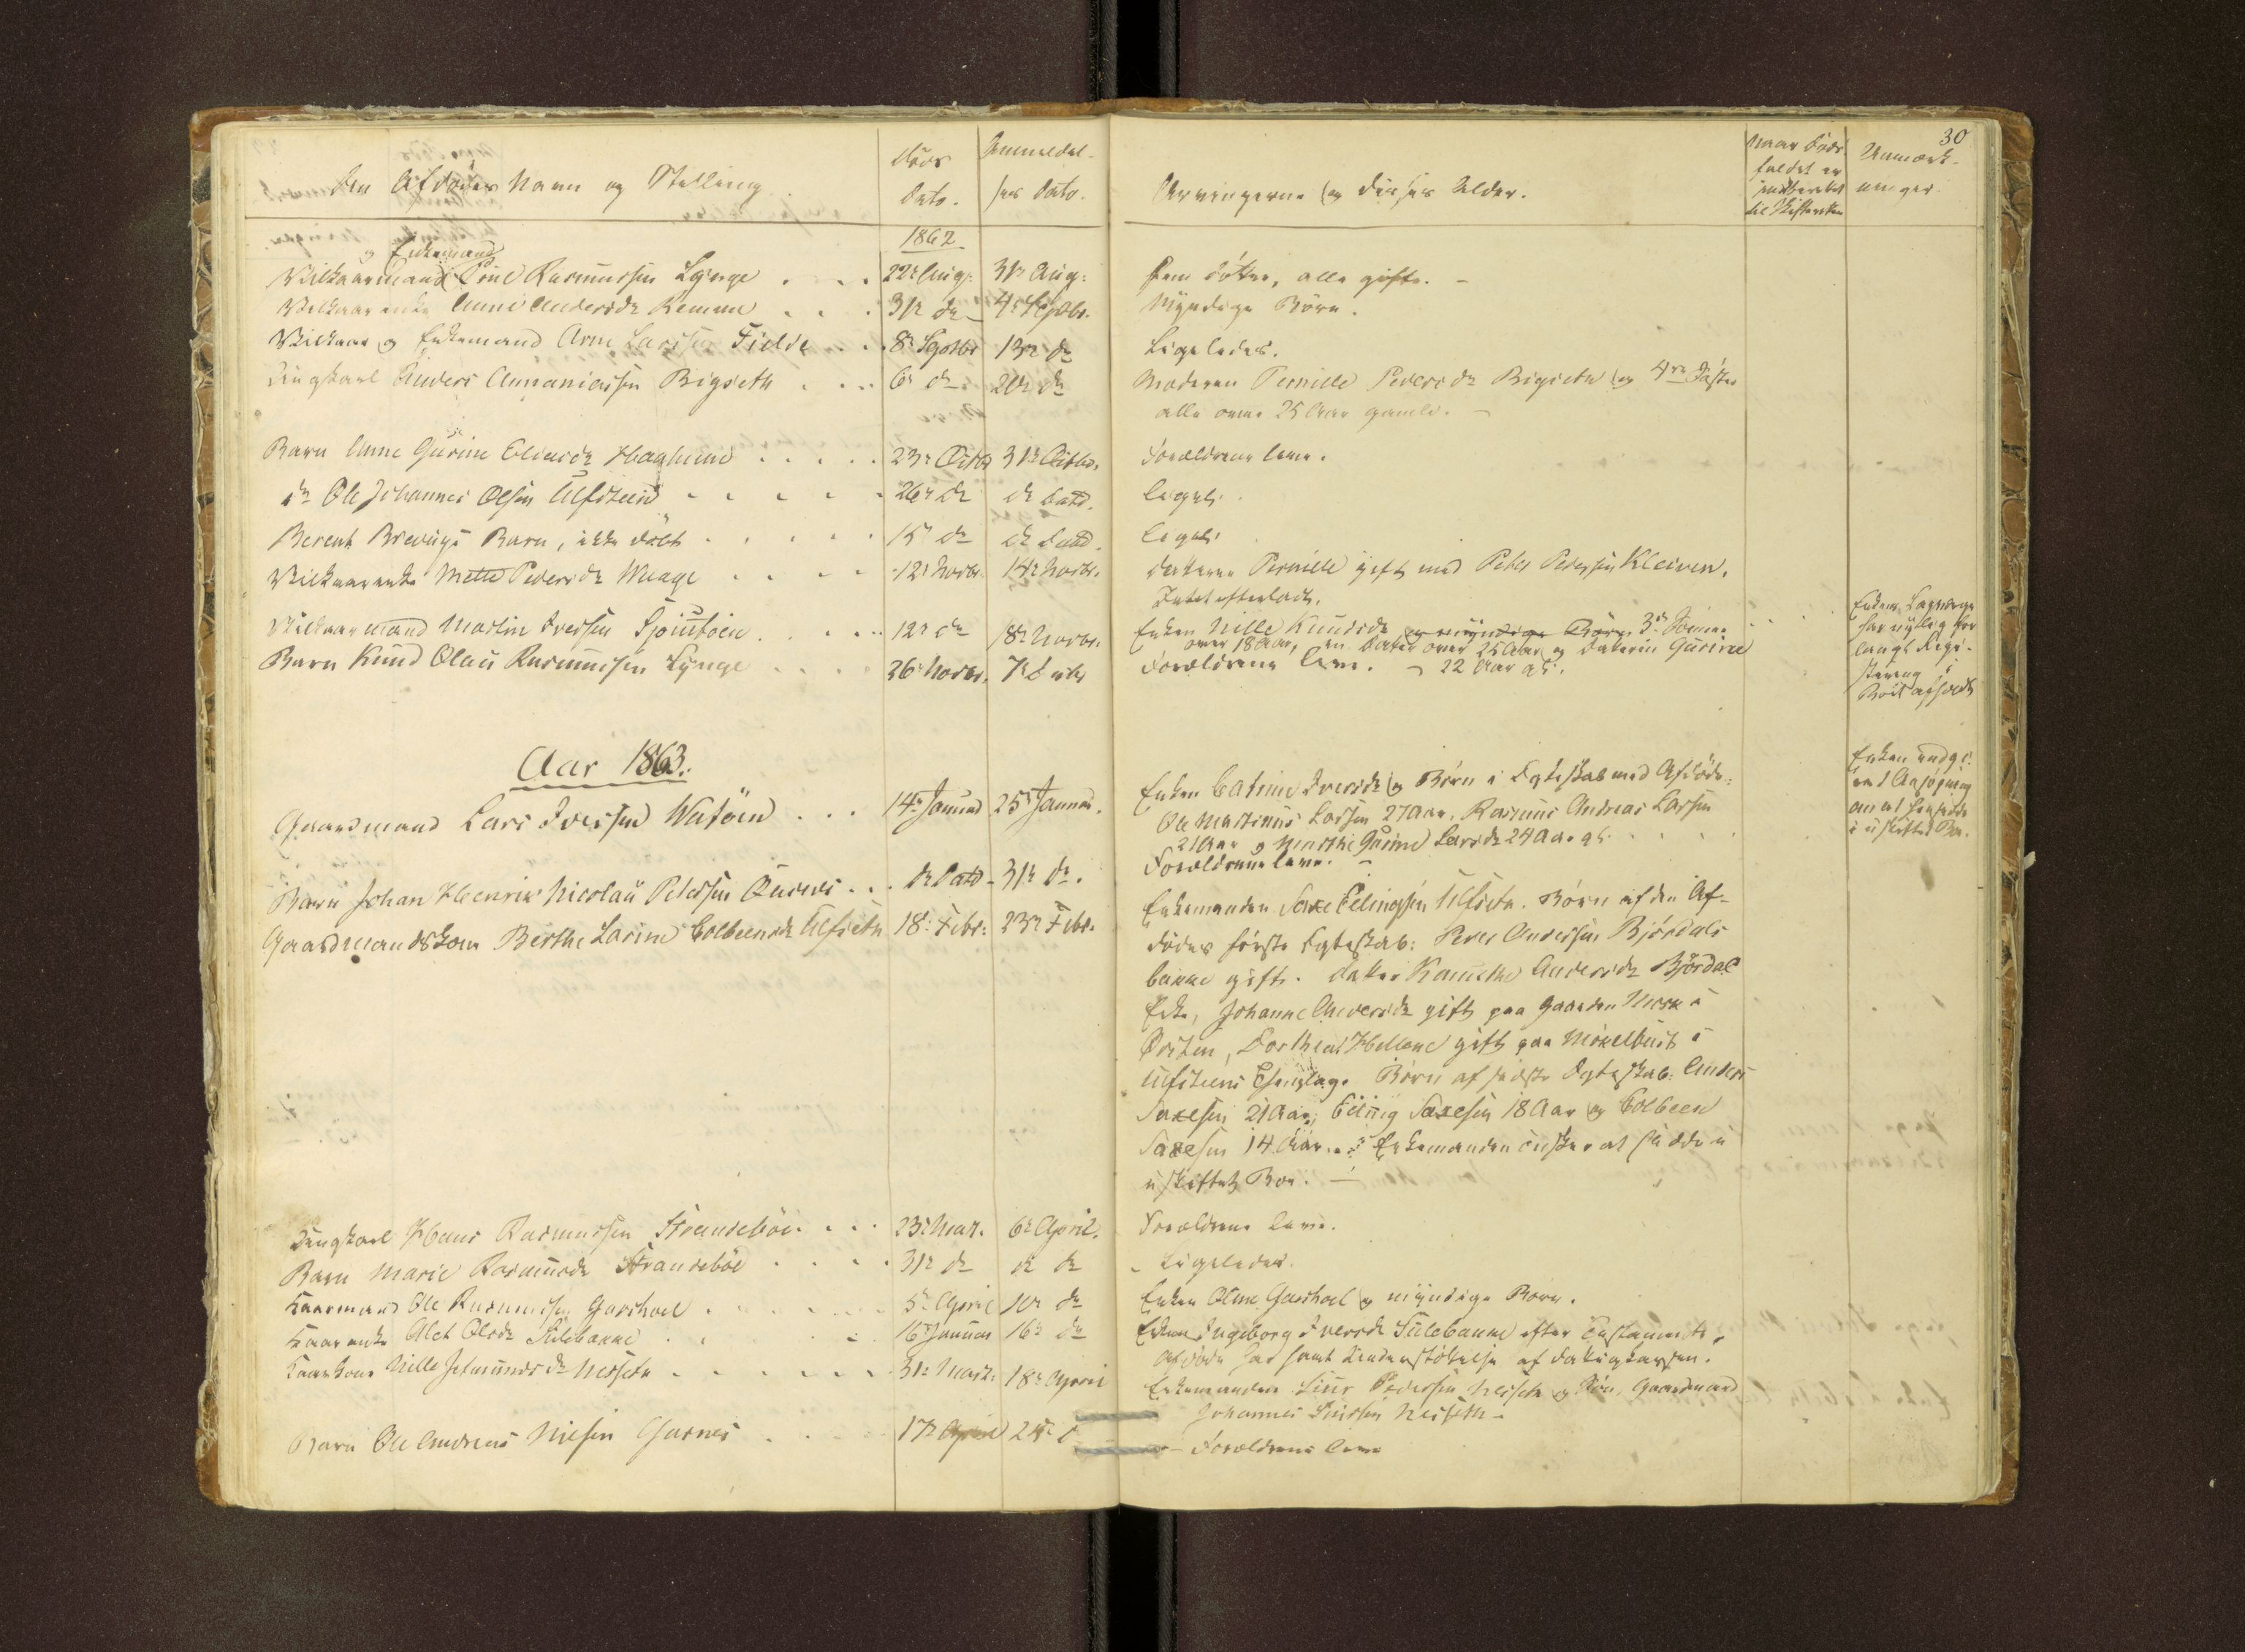 30
Den Afdødes Navn og Stilling
Døds Dato.
Anmeldelses Dato.
Arvingerne og disses Alder.
Naar Dødsfaldet er indberettet til Skifteretten
Anmærkninger.
1862
og Enkemand
Vilkaarmand Poul Rasmussen Lynge . . . 22de Aug. 31te Aug: Fem Døttre, alle gifte. -
Vilkaarenke Anne Andersdr Remme . . . 31te do 4de Septbr. Myndige Børn.
Vilkaar og Enkemand Arne Larssen Fielde . . . 8de Septbr 13de do Ligeledes.
Ungkarl Anders Annaniassen Rigseth . . . 6te do 20de do Moderen Pernille Pedersdr Rigseth og 4re Søstre
alle over 25 Aar gamle. -
Barn Anne Gurine Eliasdr Haahjem . . . . . 23de Octbr 31te Octbr. Forældrene leve.
do Ole Johannes Olsen Ulfsteen . . . . . 26de do do Dato. Ligel.
Berent Brevigs Barn, ikke døbt . . . . . 15de do do Dato. Ligel.
Vilkaarenke Mette Pedersdr Waage . . . . 12te Novbr. 14de Novbr. Datteren Pernille gift med Peter Pedersen Kleiven.
Intet efterladt.
Vilkaarmand Martin Iversen . . . . . 12te do 18de Novbr. Enken Nille Knudsdr og myndige Børn 3de Sønner
over 18 Aar, en Datter over 25 Aar og Datteren Gurine
22 Aar gl.
Barn Knud Olaus Rasmussen Lynge . . . . 26de Novbr. 7de Decbr Forældrene leve.
Enkens Laugværge
har nylig for
langt Regi-
strering i
Boet afholdt
Aar 1863.
Gaardmand Lars Iversen Watøen . . . 14de Januar 25de Januar. Enken Catrine Iversdr og Børn i Ægteskab med Afdøde:
Ole Martinus Larssen 27 Aar, Rasmus Andreas Larssen
21 Aar og Marthe Gurine Larsdr 24 Aar gl.
Enken
Ansøgning
om at hensidde
i uskiftet Bo.
Barn Johan Henrik Nicolai Petersen . . . do Dato - 31te do. Forældrene leve. -
Gaardmandskone Berthe Larine Colbeensdr Ulfseth 18de Febr: 23de Febr. Enkemanden Saxe Ellingsen Ulfseth. Børn af den Af-
dødes første Ægteskab: Peder Andersen Bjørdals
bakke gift. Datter Andersdr Bjørdal
Enke, Johanne Andersdr gift paa Gaarden i
Ørsten, Dorthea Hellene gift paa Mykelbust i
Ulfsteens Thinglag. Børn af sidste Ægteskab: Anders
Saxesen 21 Aar, Elling Saxesen 18 Aar og Colbeen
Saxesen 14 Aar. - Enkemanden ønsker at sidde i
uskiftet Bo. -
Ungkarl Hans Rasmussen Strandebøe . . . 23de Mar. 6te April. Forældrene leve.
Barn Marie Rasmusdr Strandebøe . . . . 31te do do do - Ligeledes.
Kaarmand Ole Rasmussen Garshoel . . . . . 5te April 10de do Enken Garshoel og myndige Børn.
Kaarenke Alet Olsdr Sulebakke . . . 16de Januar 16de do Enken Ingeborg Iversdr Sulebakke efter Testamente,
Afdøde har havt Understøttelse af Fattigkassen.
Kaarkone Nille Jetmundsdr Nesseth . . . . . 31te Marts 18de April Enkemanden Siur Pedersen Nesseth og Søn, Gaardmand
Johannes Siursen Nesseth -
Barn Ole Andreas Nilsen Garnes . . . . 17de April 24de - Forældrene leve